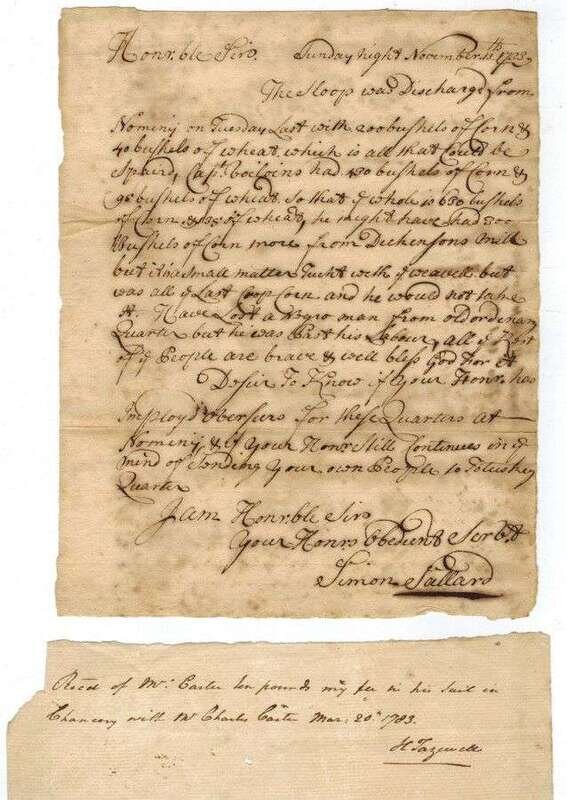 Honrble Sir. Sunday night November 15th
The Sloop was Discharge from
Nominy on Tuesday Last with 200 bushels of Corn &
40 bushels of wheat which is all that Could be
Spair, Capt. had 430 bushels of Corn &
95 bushels of wheat, So that ye whole is 630 bushels
of Corn & 135 of wheat, he might have had 300
Bushels of Corn more from Dickensons Mill
but it is a Small matter Tucht with ye weavell but
was all ye Last Coop Corn and he would not take
it. Have Lost a Negro man from old ordinary
Quarter but he was Past his Labour, all ye Rest
of ye People are brave & well bless God for it
Desir To Know if Your Honr. has
Imployd Oberseers for these Quarters at
Nominy & if Your Honr. Still Continues in ye
mind of Sending Your own People to
Quarter
I am Honrble Sir
Your Honrs Obedient Serbt.
Simon Sallard
Recd of Mr. Carter ten pounds my fee in his suit in
Chancery with Mr Charles Carter Mar: 20th 1783.
H Tazewell